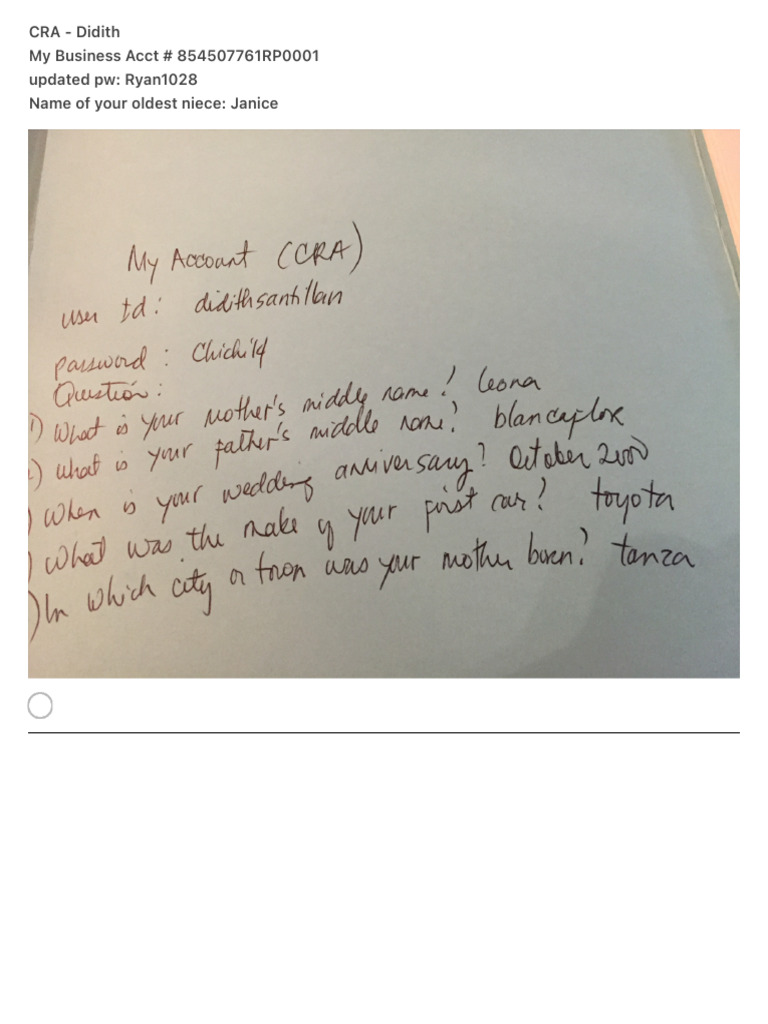 CRA - Didith
My Business Acct # 854507761RP0001
updated pw: Ryan1028
Name of your oldest niece: Janice
My Account (CRA)
user Id: didithsantillan
password: Chichi14
Question:
1) What is your mother's middle name? leona
2) What is your father's middle name? blancaflor
) When is your wedding anniversary? October 2000
) What was the make of your first car? toyota
) In which city or town was your mother born? tanza